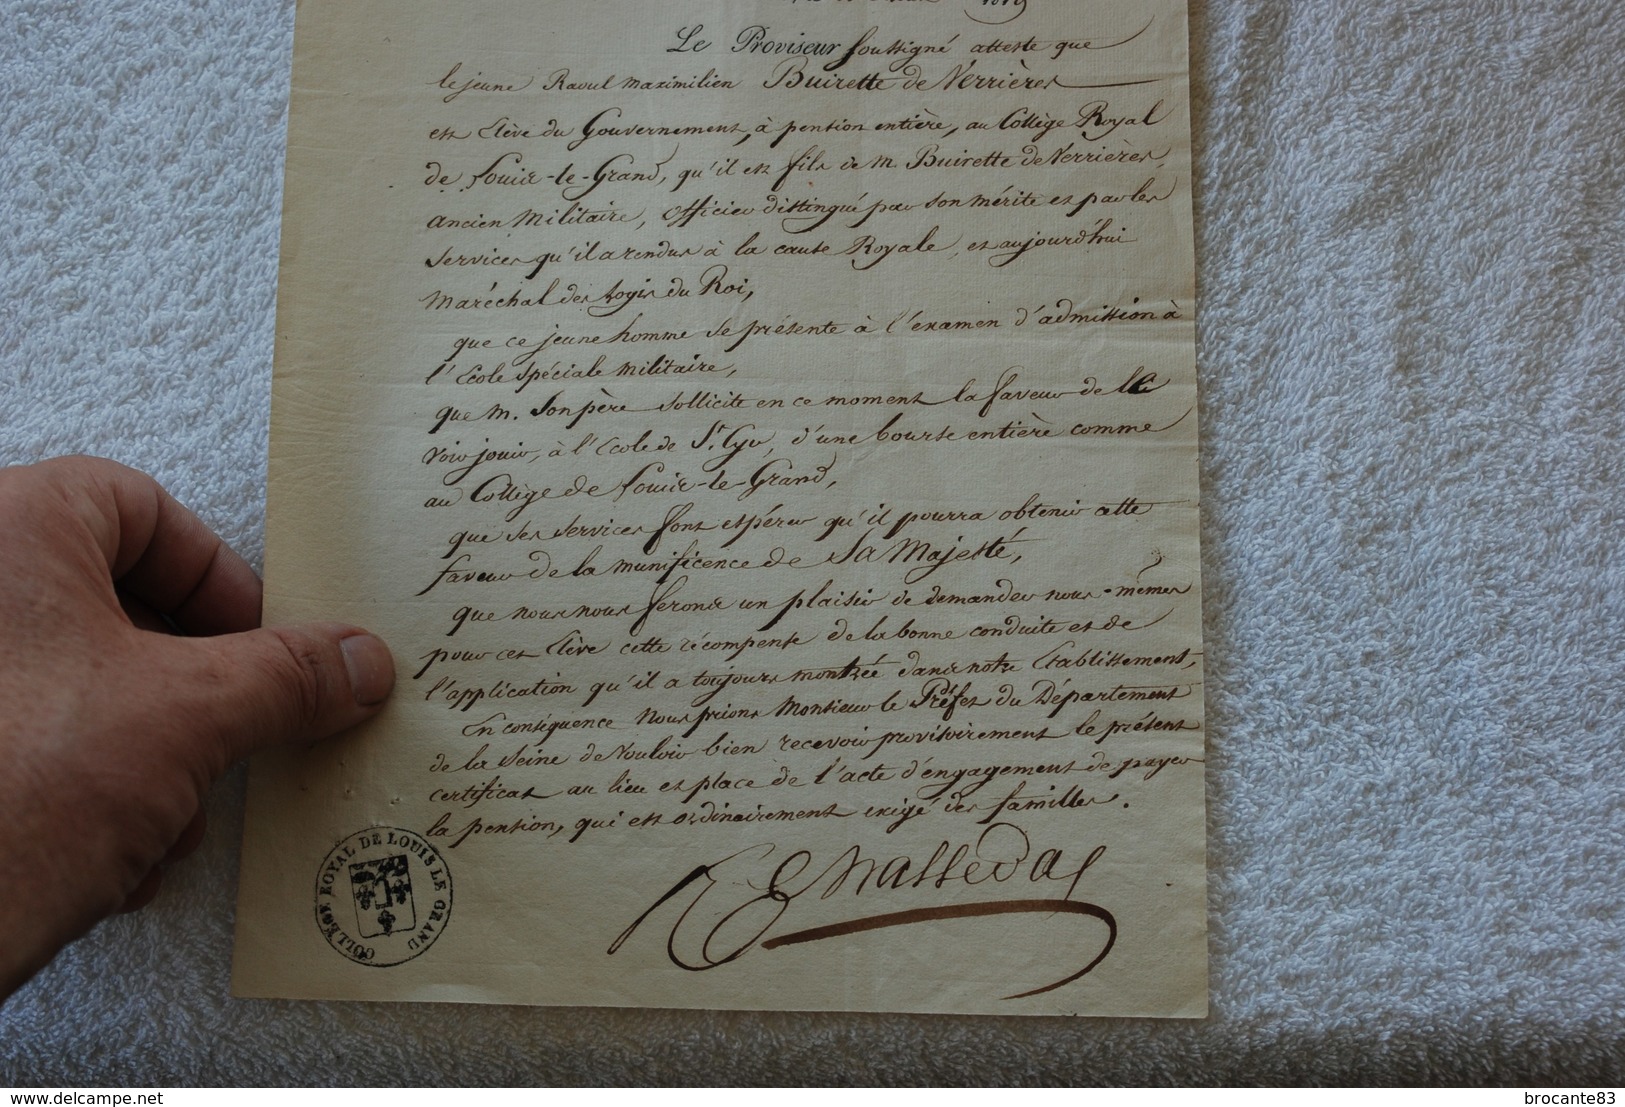 1819
Le Proviseur soussigné atteste que
le jeune Raoul Maximilien Buirette de Verrières
est Elève du Gouvernement, à pension entière, au Collège Royal
de Louis-le-Grand, qu'il est fils de M. Buirette de Verrières,
ancien Militaire, officier distingué par son mérite et par les
services qu'il a rendus à la cause Royale, et aujourd'hui
Maréchal des logis du Roi,
que ce jeune homme se présente à l'examen d'admission à
l'Ecole spéciale militaire,
que M. son père sollicite en ce moment la faveur de le
voir jouir, à l'Ecole de St. Cyr, d'une bourse entière comme
au Collège de Louis-le-Grand,
que ses services font espérer qu'il pourra obtenir cette
faveur de la munificence de Sa Majesté,
que nous nous ferons un plaisir de demander nous-mêmes
pour cet Elève cette récompense de la bonne conduite et de
l'application qu'il a toujours montrée dans notre Etablissement,
En conséquence nous prions Monsieur le Préfet du Département
de la Seine de vouloir bien recevoir provisoirement le présent
certificat au lieu et place de l'acte d'engagement de payer
la pension, qui est ordinairement exigé des familles.
COLLEGE ROYAL DE LOUIS LE GRAND
brocante83